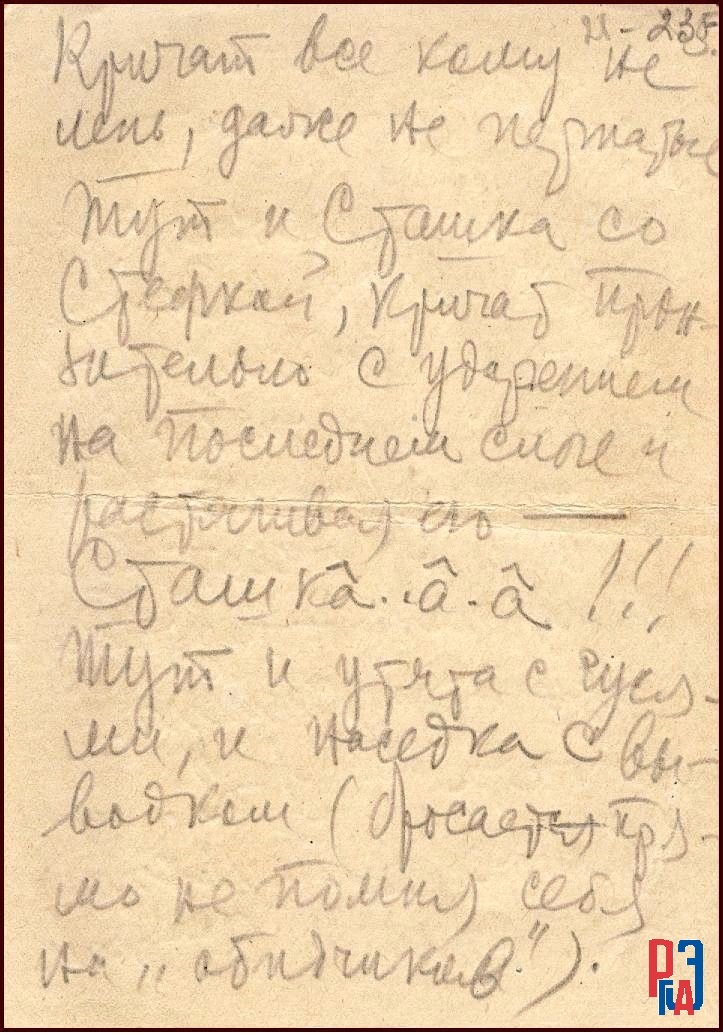 н - 235.
Кричат все кому не
лень, даже не пернатые
Тут и Сташка со
Стефкой, кричат прон-
зительно с ударением
на последнем слоге и
растягивая его —
Сташкâ..â.â !!!
Тут и утята с гуся-
ми, и наседка с вы-
водком (бросается пря-
мо не помня себя
на „обидчиков").
РГАЭ